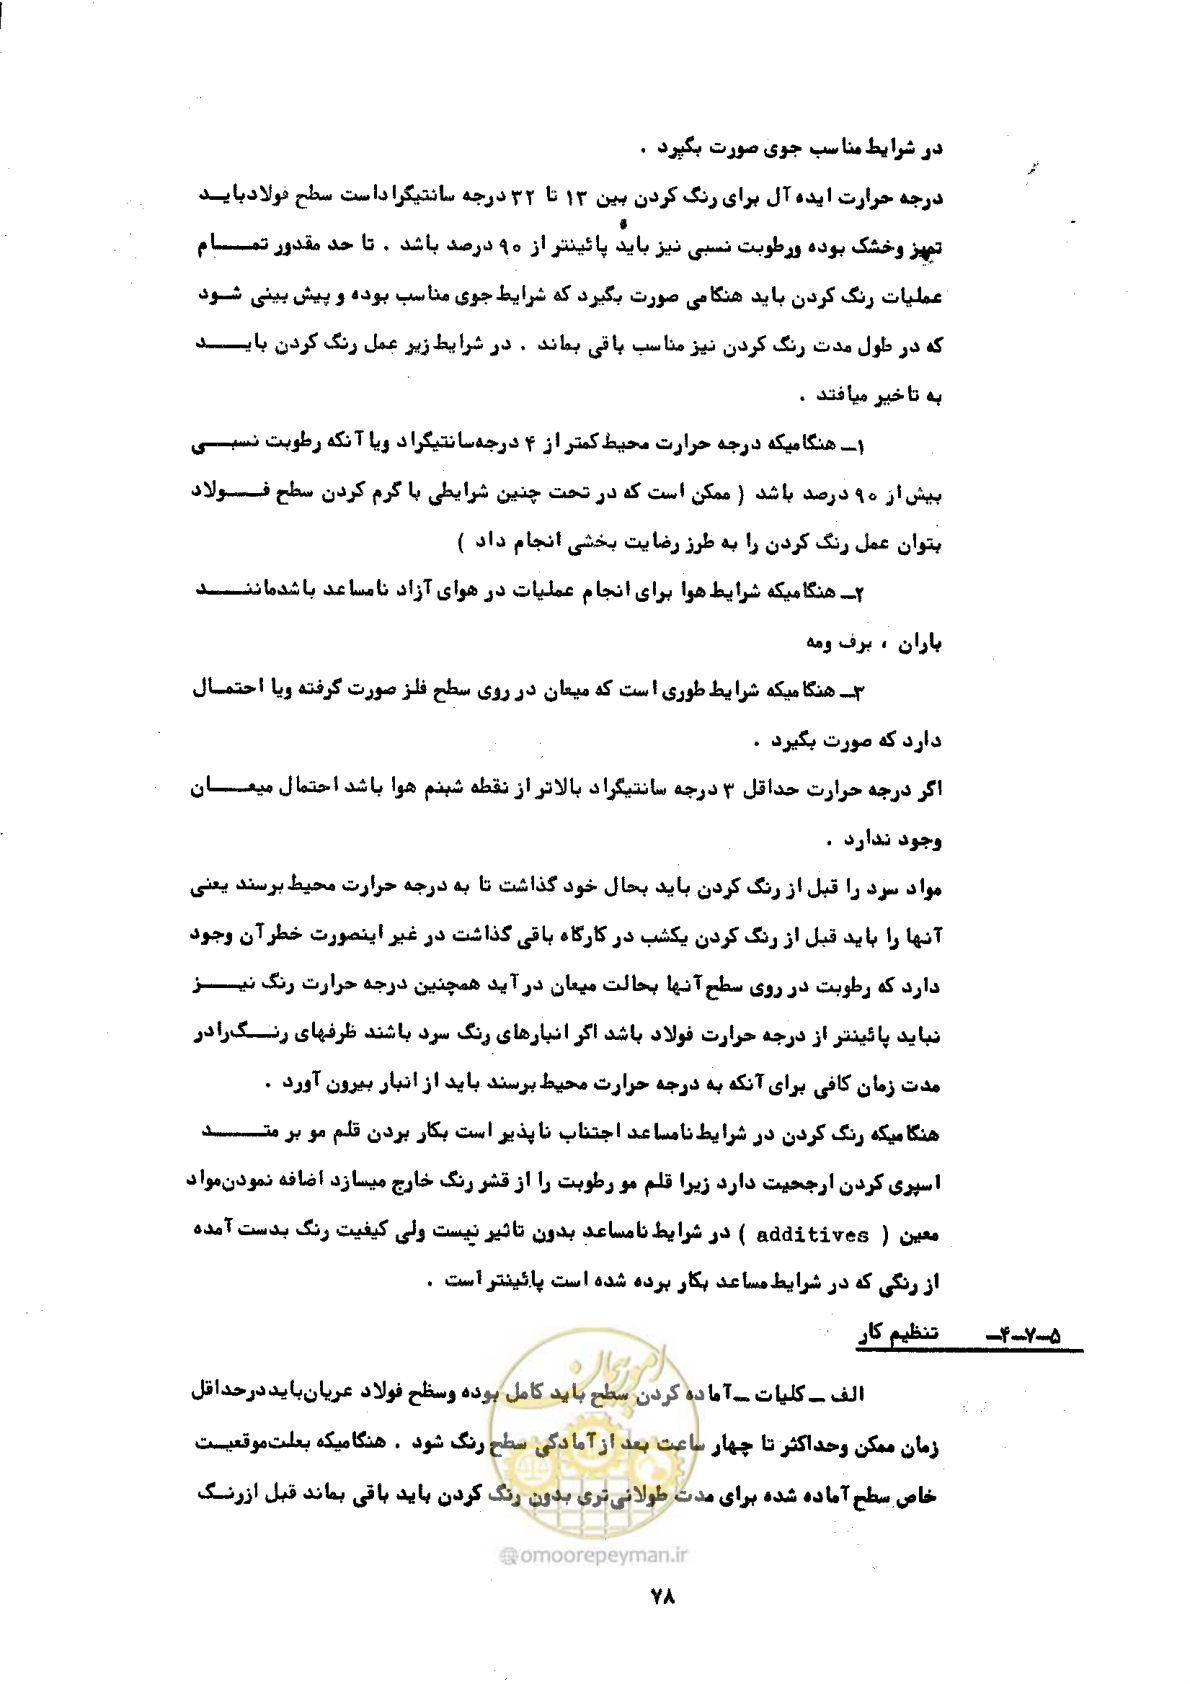 در شرایط مناسب جوی صورت بگیرد .
درجه حرارت ایده آل برای رنگ کردن بین ۱۳ تا ۳۲ درجه سانتیگراداست سطح فولادبایـد
تمیز وخشک بوده ورطوبت نسبی نیز باید پائینتر از ۹۰ درصد باشد . تا حد مقدور تمـــام
عملیات رنگ کردن باید هنگامی صورت بگیرد که شرایط جوی مناسب بوده و پیش بینی شـود
که در طول مدت رنگ کردن نیز مناسب باقی بماند . در شرایط زیر عمل رنگ کردن بایـــد
به تاخیر میافتد .
۱ـ هنگامیکه درجه حرارت محیط کمتر از ۴ درجه‌سانتیگراد ویا آنکه رطوبت نسبـی
بیش از ۹۰ درصد باشد ( ممکن است که در تحت چنین شرایطی با گرم کردن سطح فـــولاد
بتوان عمل رنگ کردن را به طرز رضایت بخشی انجام داد )
۲ـ هنگامیکه شرایط هوا برای انجام عملیات در هوای آزاد نامساعد باشدماننـــد
باران ، برف ومه
۳ـ هنگامیکه شرایط طوری است که میعان در روی سطح فلز صورت گرفته ویا احتمـال
دارد که صورت بگیرد .
اگر درجه حرارت حداقل ۳ درجه سانتیگراد بالاتر از نقطه شبنم هوا باشد احتمال میعـــان
وجود ندارد .
مواد سرد را قبل از رنگ کردن باید بحال خود گذاشت تا به درجه حرارت محیط برسند یعنی
آنها را باید قبل از رنگ کردن یکشب در کارگاه باقی گذاشت در غیر اینصورت خطر آن وجود
دارد که رطوبت در روی سطح آنها بحالت میعان در آید همچنین درجه حرارت رنگ نیـــز
نباید پائینتر از درجه حرارت فولاد باشد اگر انبارهای رنگ سرد باشند ظرفهای رنــگ‌رادر
مدت زمان کافی برای آنکه به درجه حرارت محیط برسند باید از انبار بیرون آورد .
هنگامیکه رنگ کردن در شرایط نامساعد اجتناب ناپذیر است بکار بردن قلم مو بر متـــد
اسپری کردن ارجحیت دارد زیرا قلم مو رطوبت را از قشر رنگ خارج میسازد اضافه نمودن‌مواد
معین ( additives ) در شرایط نامساعد بدون تاثیر نیست ولی کیفیت رنگ بدست آمده
از رنگی که در شرایط مساعد بکار برده شده است پائینتر است .
۵ـ۷ـ۴ـ تنظیم کار
الف ـ کلیات ـ آماده کردن سطح باید کامل بوده وسطح فولاد عریان‌باید درحداقل
زمان ممکن وحداکثر تا چهار ساعت بعد از آمادگی سطح رنگ شود . هنگامیکه بعلت‌موقعیـت
خاص سطح آماده شده برای مدت طولانی‌تری بدون رنگ کردن باید باقی بماند قبل ازرنـگ
امور پیمان
@omoorepeyman.ir
۷۸